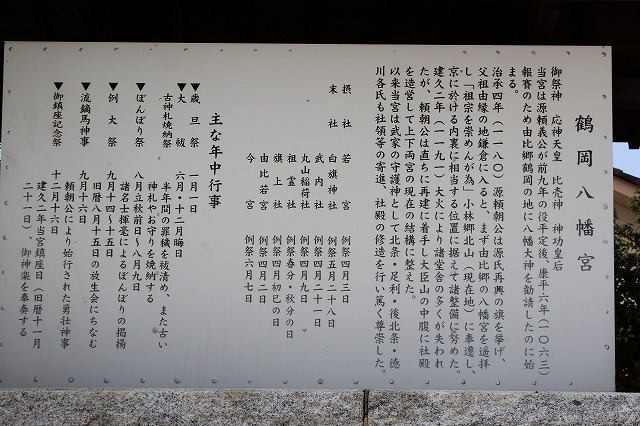 鶴岡八幡宮
御祭神　応神天皇　比売神　神功皇后
当宮は源頼義公が前九年の役平定後、康平六年（一〇六三）
報賽のため由比郷鶴岡の地に八幡大神を勧請したのに始
まる。
治承四年（一一八〇）源頼朝公は源氏再興の旗を挙げ、
父祖由縁の地鎌倉に入ると、まず由比郷の八幡宮を遥拝
し「祖宗を崇めんが為」小林郷北山（現在地）に奉遷し、
京に於ける内裏に相当する位置に据えて諸整備に努めた。
建久二年（一一九一）大火により諸堂舎の多くが失われ
たが、頼朝公は直ちに再建に着手し大臣山の中腹に社殿
を造営して上下両宮の現在の結構に整えた。
以来当宮は武家の守護神として北条・足利・後北条・徳
川各氏も社領等の寄進、社殿の修造を行い篤く尊崇した。
摂社　若宮　例祭四月三日
末社　白旗神社　例祭五月二十八日
武内社　例祭四月二十一日
丸山稲荷社　例祭四月九日
祖霊社　例祭春分・秋分の日
旗上社　例祭四月初巳の日
由比若宮　例祭四月二日
今宮　例祭六月七日
主な年中行事
▼歳旦祭　一月一日
▼大祓　六月・十二月晦日
古神札焼納祭　半年間の罪穢を祓清め、また古い
神札やお守りを焼納する
▼ぼんぼり祭　八月立秋前日〜八月九日
諸名士揮毫によるぼんぼりの掲揚
▼例大祭　九月十四〜十五日
旧暦八月十五日の放生会にちなむ
▼流鏑馬神事　九月十六日
頼朝公により始行された勇壮神事
▼御鎮座記念祭　十二月十六日
建久二年当宮鎮座日（旧暦十一月
二十一日）　御神楽を奉奏する